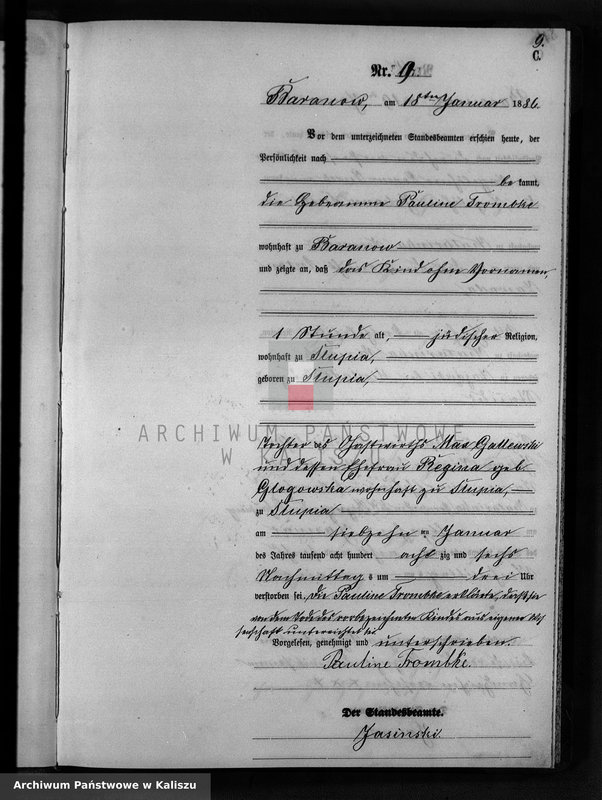 9.
C.
Nr. 9
Baranow, am 18ten Januar 1886.
Vor dem unterzeichneten Standesbeamten erschien heute, der
Persönlichkeit nach
be kannt,
die Hebeamme Pauline Trombke
wohnhaft zu Baranow
und zeigte an, daß das Kind ohne Vornamen,
1 Stunde alt, jüdischer Religion,
wohnhaft zu Slupia,
geboren zu Slupia,
ARCHIWUM PAŃSTWOWE
W KALISZU
Tochter des Gastwirths Max Gallewski
und dessen Ehefrau Regina geb.
Glogowska wohnhaft zu Slupia,
zu Slupia
am siebzehnten Januar
des Jahres tausend acht hundert achtzig und sechs
Nachmittags um drei Uhr
verstorben sei. Die Pauline Trombke erklärte, daß sie
von dem Tode des vorbezeichneten Kindes aus eigener Wis
senschaft unterrichtet sei.
Vorgelesen, genehmigt und unterschrieben.
Pauline Trombke.
Der Standesbeamte.
Jasinski.
Archiwum Państwowe w Kaliszu